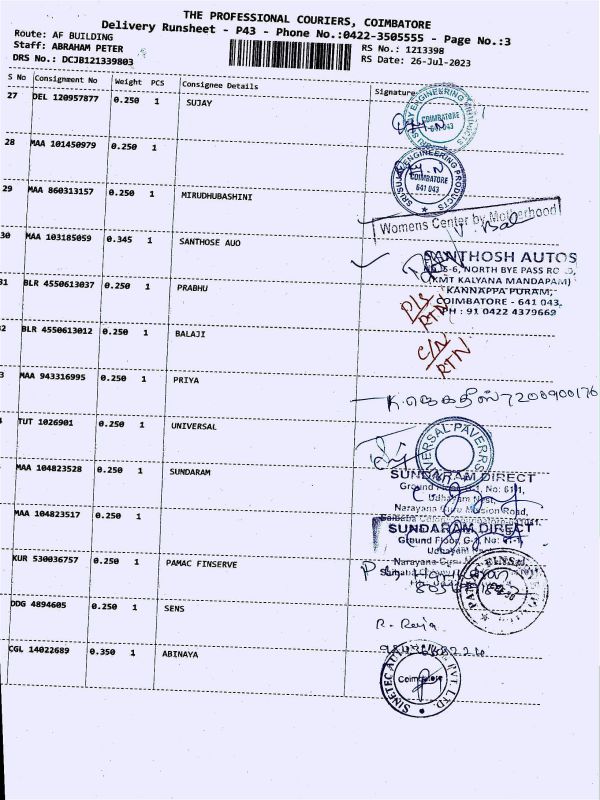 THE PROFESSIONAL COURIERS, COIMBATORE
Delivery Runsheet - P43 - Phone No.:0422-3505555 - Page No.:3
Route: AF BUILDING
Staff: ABRAHAM PETER
RS No.: 1213398
DRS No.: DCJB121339803
RS Date: 26-Jul-2023
S No Consignment No Weight PCS Consignee Details Signature
27 DEL 120957877 0.250 1 SUJAY
COIMBATORE
641 043
28 MAA 101450979 0.250 1
SRI SUJAY ENGINEERING PRODUCTS
COIMBATORE
641 043
29 MAA 860313157 0.250 1 MIRUDHUBASHINI
Womens Center by Motherhood
30 MAA 103185059 0.345 1 SANTHOSE AUO
SANTHOSH AUTOS
S-6, NORTH BYE PASS ROAD,
(KMT KALYANA MANDAPAM)
KANNAPPA PURAM,
COIMBATORE - 641 043.
PH : 91 0422 4379669
31 BLR 4550613037 0.250 1 PRABHU
D/S
RTN
2 BLR 4550613012 0.250 1 BALAJI
C/N
RTN
3 MAA 943316995 0.250 1 PRIYA
TUT 1026901 0.250 1 UNIVERSAL
UNIVERSAL PAVERRS
MAA 104823528 0.250 1 SUNDARAM
SUNDARAM DIRECT
Narayana Guru Mission Road,
MAA 104823517 0.250 1
SUNDARAM DIRECT
Ground Floor,
KUR 530036757 0.250 1 PAMAC FINSERVE
DDG 4894605 0.250 1 SENS
R. Raja
CGL 14022689 0.350 1 ABINAYA
Coimbatore
PVT. LTD.